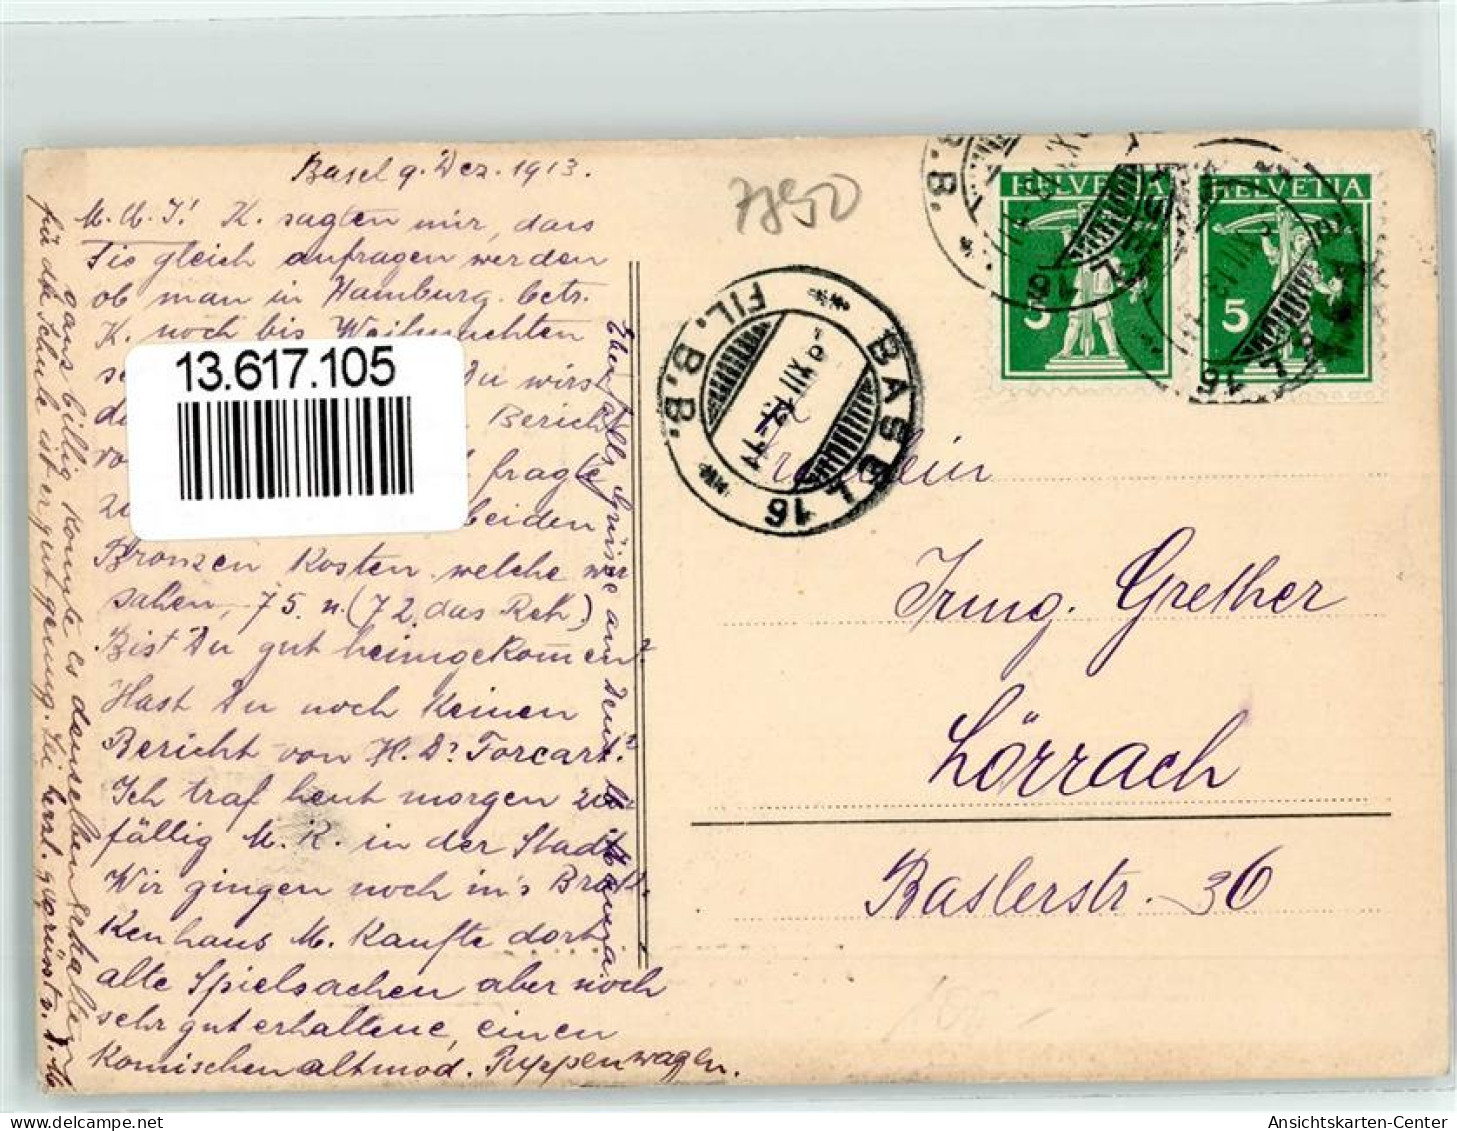 Basel 9. Dez. 1913.
M. M. J! K. sagten mir, dass
Sie gleich anfragen werden
ob man in Hamburg betr.
K. noch bis Weihnachten
Du wirst
Bericht
fragte
beiden
Bronzen kosten welche wir
sahen, 75. u. (72. das Reh.)
Bist Du gut heimgekommen?
Hast Du noch keinen
Bericht von H. Dr. Forcart?
Ich traf heut morgen zu-
fällig M. R. in der Stadt
Wir gingen noch in's Brok-
kenhaus M. kaufte dort
alte Spielsachen aber noch
sehr gut erhaltene, einen
komischen altmod. Puppenwagen.
ganz billig konnte es denselben erhalten
für das Schule ist er gut genug. Sei herzl. gegrüsst v. D. M.
Ebenfalls Grüsse an Deine lb. Mama.
13.617.105
7850
BASEL 16
FIL. B.B.
9. XII 13. 11
HELVETIA
5
HELVETIA
5
B.B.
L 16
L 16
Fräulein
Irmg. Grether
Lörrach
Baslerstr. 36
Ansichtskarten-Center